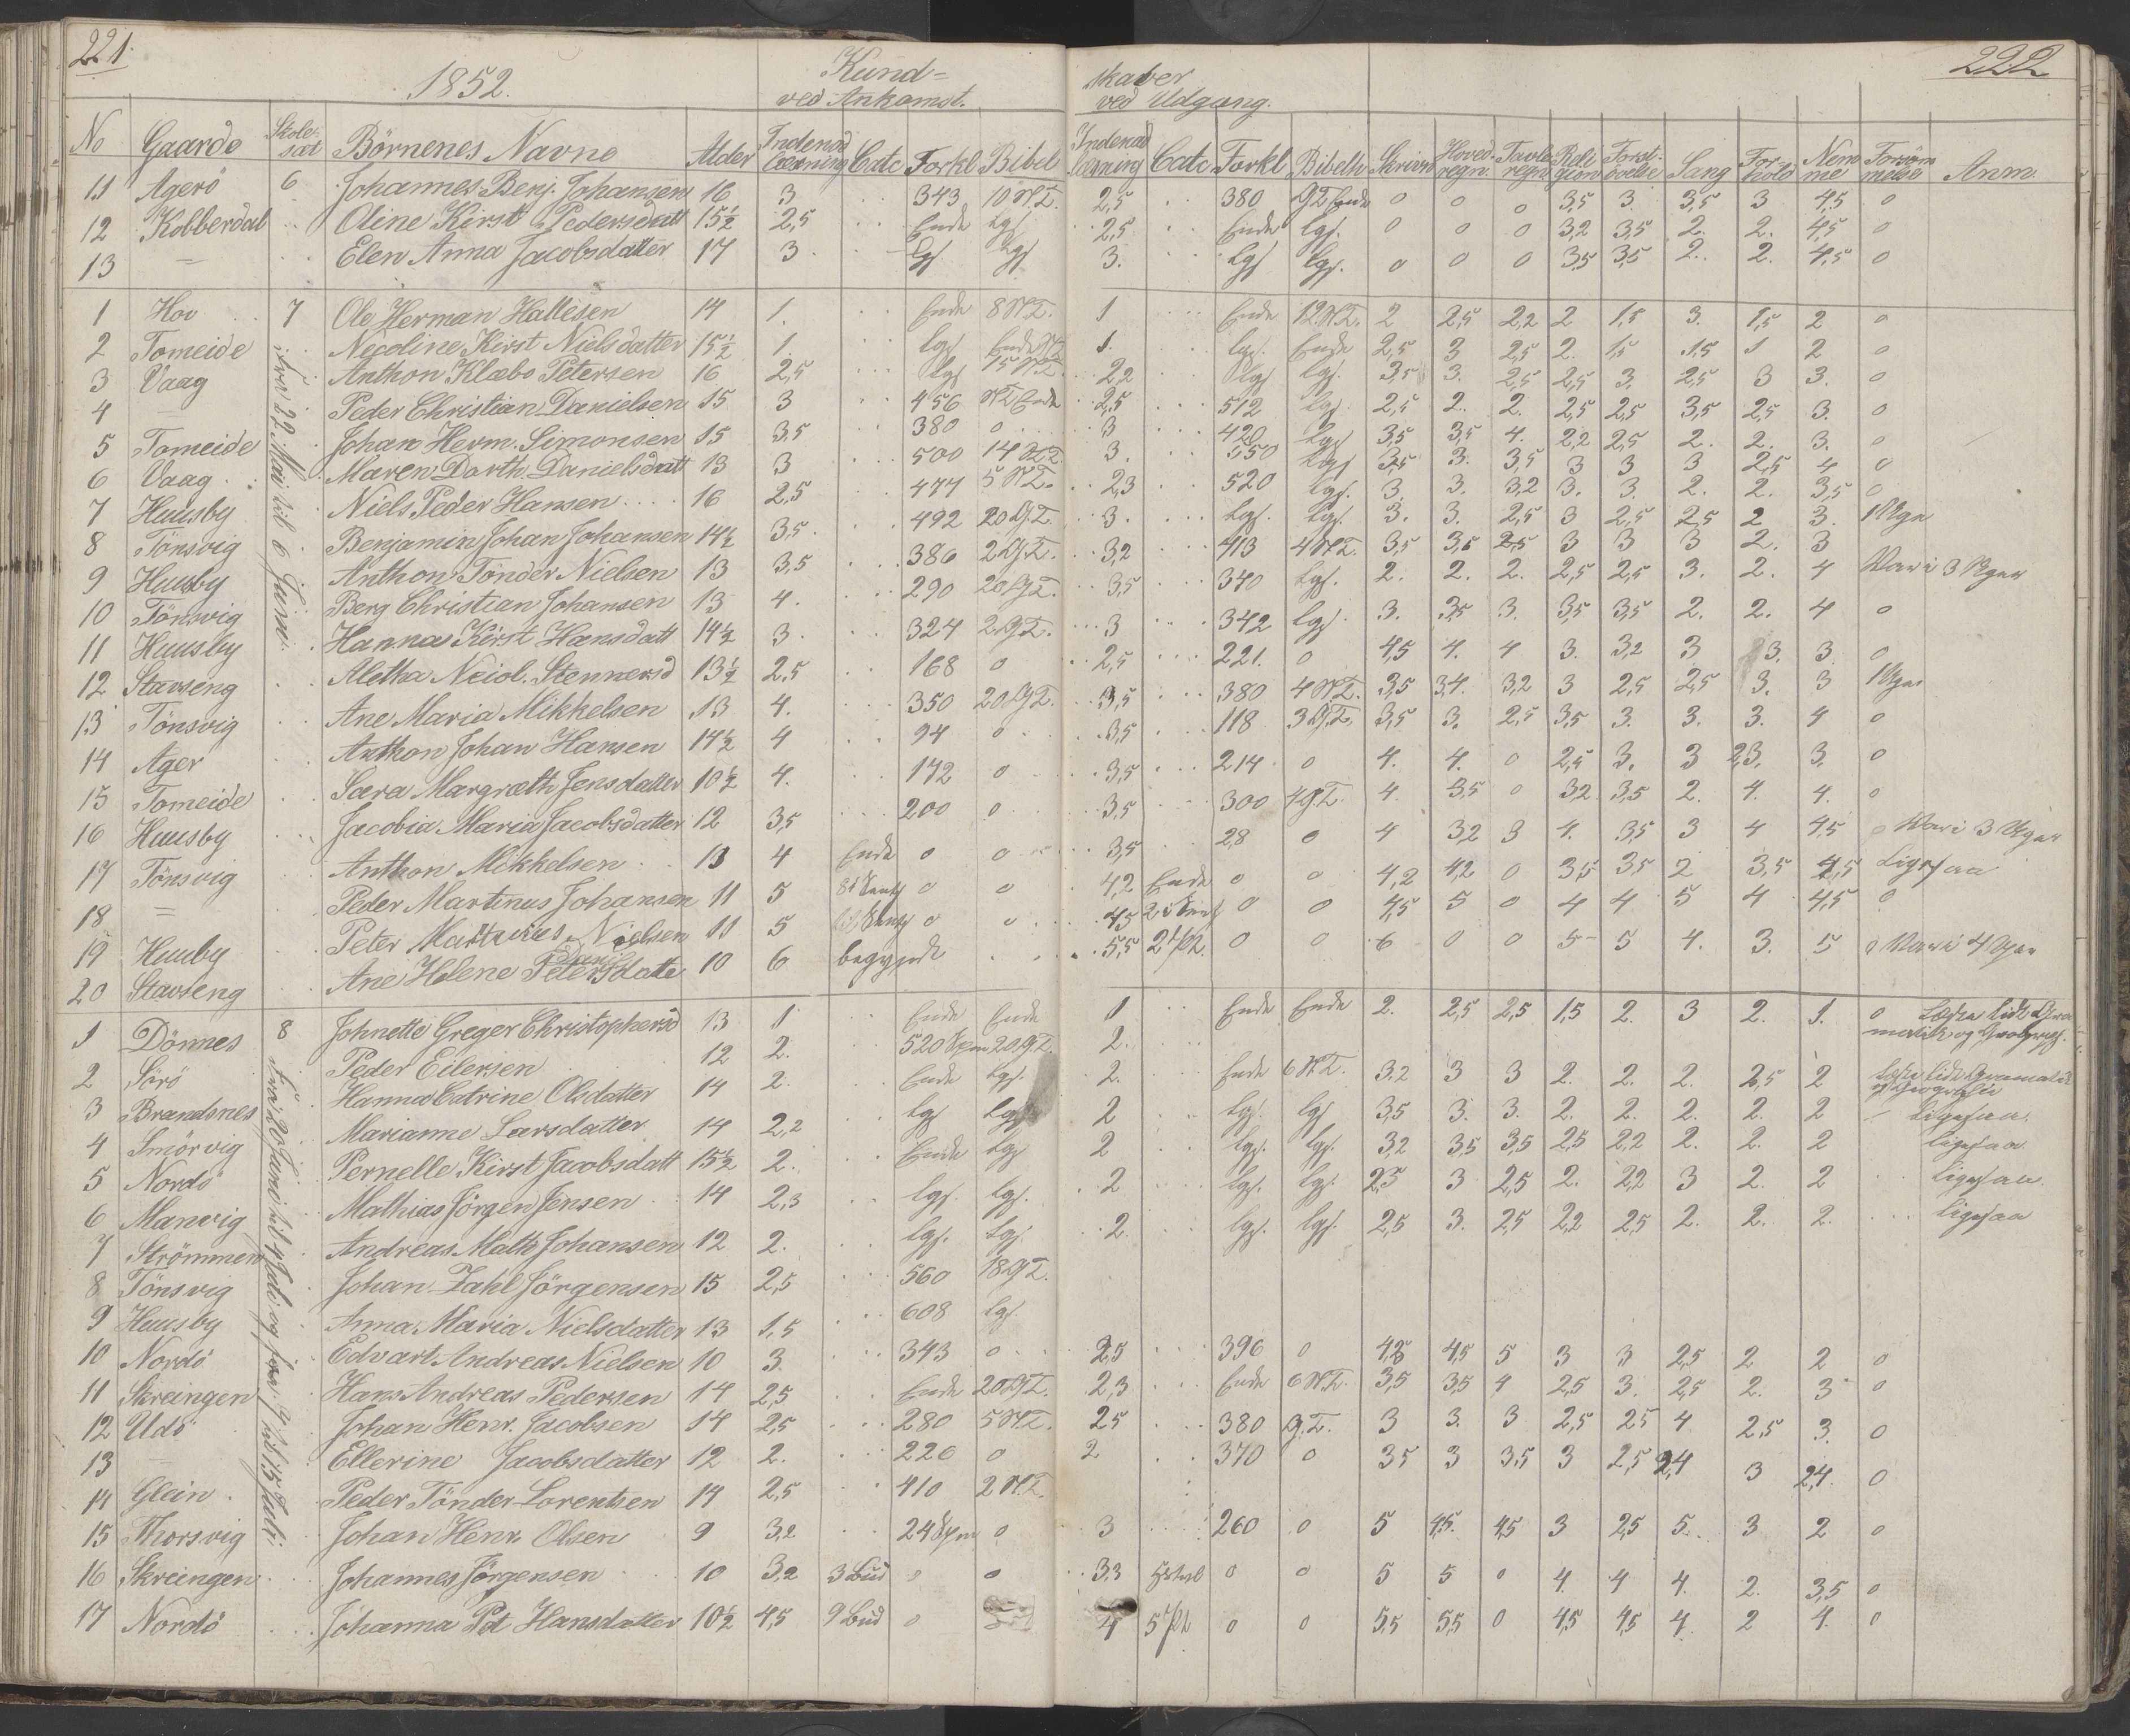 221. 222
1852. Kund= skaber
ved Ankomst. ved Udgang.
No Gaarde Skole-sæt Börnenes Navne Alder Indenad Læsning Catc Forkl Bibel Indenad Læsning Catc Forkl Bibelh Skrivn Hovedregn. Tavleregn. Religion Forst. övelse Sang Forhold Nemme Forsömmelse Anm.
11 Agerö 6 Johannes Benj. Johansen 16 3 343 10 N.T. 2,5 380 G T Ende 0 0 0 3,5 3. 3,5 3 4,5 0
12 Kobberdal Oline Kirst Pedersdatt 15½ 2,5 Ende Lgs 2,5 Ende lgs. 0 0 0 3,2 3,5 2. 2. 4,5 0
13 — Elen Anna Jacobsdatter 17 3 Lgs Lgs 3. Lgs lgs. 0 0 0 3,5 3,5 2. 2. 4,5 0
1 Hov 7 Ole Herman Hallesen 14 1. Ende 8 N.T. 1 Ende 12 N.T. 2 2,5 2,2 2 1,5 3. 1,5 2 0
fra 22 Mai til 6 Juni
2 Tomeide Nicoline Kirst Nielsdatter 15½ 1. lgs Ende 1. lgs. Ende 2,5 3 2,5 2. 1,5 1,5 1 2 0
3 Vaag Anthon Klæbo Petersen 16 2,5 Lgs 15 N.T. 2,2 lgs lgs. 3,5 3. 2,5 2,5 3. 2,5 3 3. 0
4 — Peder Christian Danielsen 15 3 456 N T Ende 2,5 512 lgs 2,5 2. 2. 2,5 2,5 3,5 2,5 3. 0
5 Tomeide Johan Herm. Simonsen 15 3,5 380 0 3 420 Lgs 3,5 3,5 4. 2,2 2,5 2. 2. 3. 0
6 Vaag Maren Dorth. Danielsdatt 13 3 500 14 G.T. 3. 550 Lgs 3,5 3. 3,5 3 3 3 2,5 4 0
7 Huusby Niels Peder Hansen 16 2,5 477 5 N.T. 2,3 520 lgs. 3. 3. 3,2 3. 3. 2. 2. 3,5 0
8 Tönsvig Benjamin Johan Johansen 14½ 3,5 492 20 G.T. 3. Lgs. Lgs. 3. 3. 2,5 3 2,5 2,5 2 3. 1 Uge
9 Huusby Anthon Tönder Nielsen 13 3,5 386 2 G.T. 3,2 413 4 N.T. 3,5 3,5 2,5 3 3 3 2. 3
10 Tönsvig Berg Christian Johansen 13 4. 290 20 G.T. 3,5 340 Lgs. 2. 2. 2. 2,5 2,5 3. 2. 4 Var i 3 Uger
11 Huusby Hanna Kirst Hansdatt 14½ 3. 324 2 G.T. 3 342 lgs. 3. 3,5 3. 3,5 3,5 2. 2. 4 0
12 Stavseng Aletha Stennersd 13½ 2,5 168 0 2,5 221. 0 4,5 4. 4 3. 3,2 3 3. 3. 0
13 Tönsvig Ane Maria Mikkelsen 13 4. 350 20 G.T. 3,5 380 4 N.T. 3,5 3,4. 3,2 3 2,5 2,5 3. 3 1 Uge
14 Ager Anthon Johan Hansen 14½ 4 94 0 3,5 118 3 G.T. 3,5 3. 2,5 3,5 3. 3. 3. 4 0
15 Tomeide Sara Margræth Jensdatter 10½ 4. 172 0 3,5 214 0 4. 4. 0 2,5 3. 3 2,3. 3. 0
16 Huusby Jacobia Maria Jacobsdatter 12 3,5 200 0 3,5 300 4 G.T. 4. 3,5 0 3,2 3,5 2. 4. 4. 0
17 Tönsvig Anthon Mikkelsen 13 4 Ende 0 0 3,5 28 0 4 3,2 3 4. 3,5 3 4 4,5 Var i 3 Uger
18 — Peder Martinus Johansen 11 5 0 0 4,2 Ende 0 0 4,2 4,2 0 3,5 3,5 2 3,5 4,5 Ligesaa
19 Huusby Peter Martinus Nielsen 11 5 0 0 4,5 0 0 4,5 5 0 4 4 5 4 4,5 0
20 Stavseng Ane Helene Petersdatte 10 6 begyndt 5,5 0 0 6 0 0 5 5 4. 3. 5 Var i 4 Uger
1 Dönnes 8 Johnette Greger Christophersd 13 1 Ende Ende 1 Ende Ende 2. 2,5 2,5 1,5 2. 3 2. 1. 0 Læste lidt Gramatik og Geograph.
fra 20 Juni til 4 Juli og fra 9 til 15 Juli
2 Sörö Peder Eilersen 12 2. 520 Spm 20 G.T. 2.
3 Brandsnes Hanna Catrine Olsdatter 14 2. Ende Lgs. 2. Ende 6 N.T. 3,2 3 3 2. 2. 2. 2,5 2 Læste lidt Gramatik og Geografie
4 Smörvig Marianne Larsdatter 14 2,2 Lgs Lgs 2 Lgs. lgs 3,5 3. 3. 2. 2. 2. 2. 2 Ligesaa.
5 Nordö Pernelle Kirst Jacobsdatt 15½ 2. Ende Lgs 2 lgs. lgs. 3,2 3,5 3,5 2,5 2,2 2. 2. 2 ligesaa
6 Manvig Mathias Jörgen Jensen 14 2,3 lgs. lgs. 2 Lgs. lgs. 2,5 3 2,5 2. 2,2 3 2. 2 ligesaa.
7 Strömmen Andreas Math Johansen 12 2. lgs. Lgs. 2. lgs. lgs. 2,5 3. 2,5 2,2 2,5 2. 2. 2. ligesaa
8 Tönsvig Johan Zahl Jörgensen 15 2,5 560 18 G.T.
9 Huusby Anna Maria Nielsdatter 13 1,5 608 lgs.
10 Nordö Edvart Andreas Nielsen 10 3. 343 0 2,5 396 0 4,5 4,5 5 3 3 2,5 2 2 0
11 Skreingen Hans Andreas Pedersen 14 2,5 Ende 20 G.T. 2,3 Ende 6 N.T. 3,5 3,5 4 2,5 3. 2,5 2. 3 0
12 Udö Johan Henr. Jacobsen 14 2,5 280 5 N.T. 2,5 380 G.T. 3 3. 3 2,5 2,5 4 2,5 3. 0
13 — Ellerine Jacobsdatter 12 2. 220 0 2 370 0 3,5 3 3,5 3 2,5 2,4 3 2,4. 0
14 Glein Peder Tönder Lorentsen 14 2,5 410 2 N.T.
15 Thorsvig Johan Henr. Olsen 9 3,2 24 Spm 0 3 260 0 5 4,5. 4,5 3 2,5 5. 3 2 0
16 Skreingen Johannes Jörgensen 10 3,2 3 Bud 0 0 3,3 0 0 5 5 0 4. 4 4. 2. 3,5 0
17 Nordö Johanna Pet Hansdatter 10½ 4,5 9 Bud 0 4 0 0 5,5 5,5 0 4,5 4,5 4. 2 4. 0